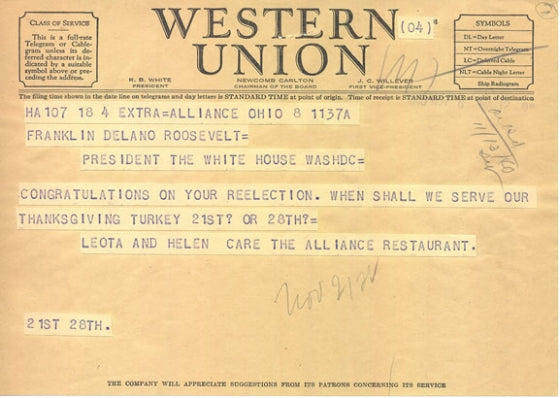 CLASS OF SERVICE
This is a full-rate
Telegram or Cable-
gram unless its de-
ferred character is in-
dicated by a suitable
symbol above or pre-
ceding the address.
WESTERN
UNION
(04)
R. B. WHITE
PRESIDENT
NEWCOMB CARLTON
CHAIRMAN OF THE BOARD
J. C. WILLEVER
FIRST VICE-PRESIDENT
SYMBOLS
DL=Day Letter
NT=Overnight Telegram
LC=Deferred Cable
NLT=Cable Night Letter
Ship Radiogram
The filing time shown in the date line on telegrams and day letters is STANDARD TIME at point of origin. Time of receipt is STANDARD TIME at point of destination
HA107 18 4 EXTRA=ALLIANCE OHIO 8 1137A
FRANKLIN DELANO ROOSEVELT=
PRESIDENT THE WHITE HOUSE WASHDC=
CONGRATULATIONS ON YOUR REELECTION. WHEN SHALL WE SERVE OUR
THANKSGIVING TURKEY 21ST? OR 28TH?=
LEOTA AND HELEN CARE THE ALLIANCE RESTAURANT.
21ST 28TH.
THE COMPANY WILL APPRECIATE SUGGESTIONS FROM ITS PATRONS CONCERNING ITS SERVICE